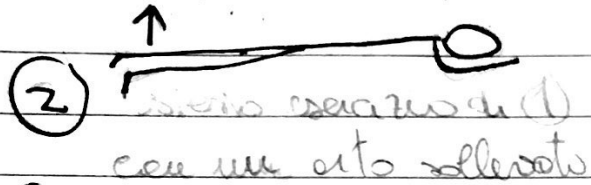 2 esercizio di (1)
con un arto sollevato